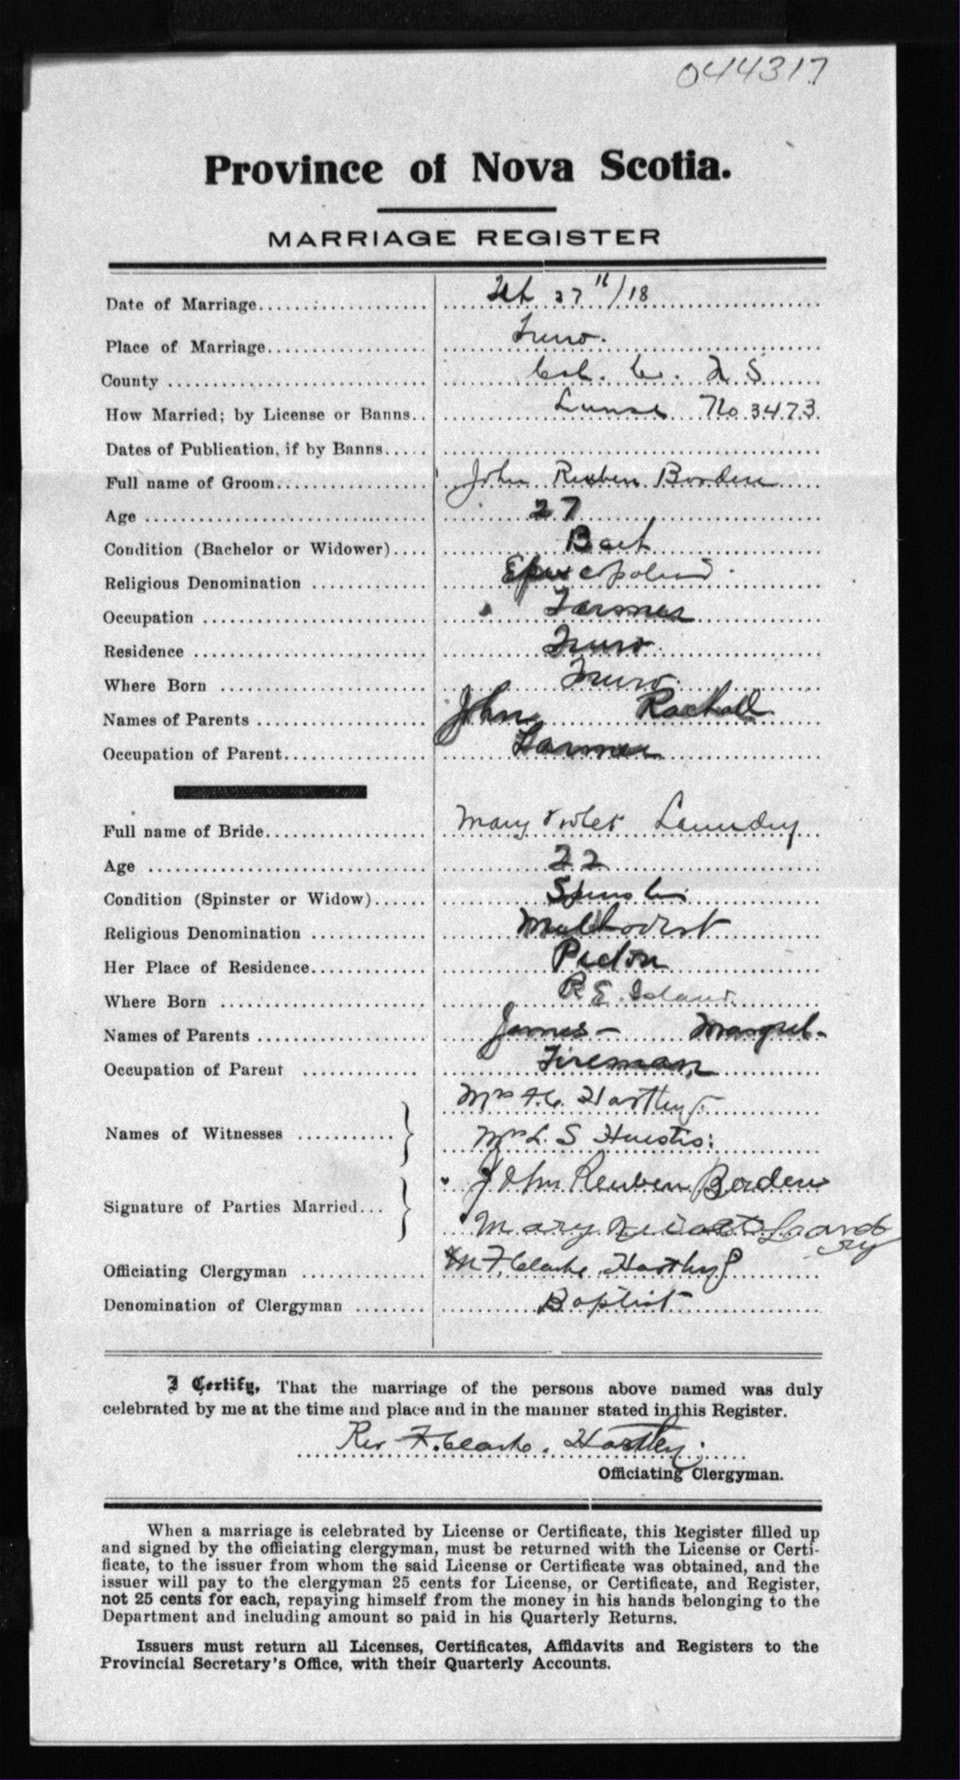 044317
Province of Nova Scotia.
MARRIAGE REGISTER
Date of Marriage Feb 27th/18
Place of Marriage Truro.
County Col. Co. N S
How Married; by License or Banns License No 3473
Dates of Publication, if by Banns
Full name of Groom John Reuben Borden
Age 27
Condition (Bachelor or Widower) Bach
Religious Denomination
Occupation Farmer
Residence Truro
Where Born Truro
Names of Parents John Rachall
Occupation of Parent Farmer
Full name of Bride Mary Violet Laundry
Age 22
Condition (Spinster or Widow) Spinster
Religious Denomination Methodist
Her Place of Residence Pictou
Where Born P. E. Island
Names of Parents James -
Occupation of Parent Fireman
Names of Witnesses Mrs F. C. Hartley
Mrs L. S Huestis
Signature of Parties Married John Reuben Borden
Mary Landry
Officiating Clergyman F. Clarke Hartley
Denomination of Clergyman Baptist
I Certify, That the marriage of the persons above named was duly
celebrated by me at the time and place and in the manner stated in this Register.
Rev F. Clarke. Hartley
Officiating Clergyman.
When a marriage is celebrated by License or Certificate, this Register filled up
and signed by the officiating clergyman, must be returned with the License or Certi-
ficate, to the issuer from whom the said License or Certificate was obtained, and the
issuer will pay to the clergyman 25 cents for License, or Certificate, and Register,
not 25 cents for each, repaying himself from the money in his hands belonging to the
Department and including amount so paid in his Quarterly Returns.
Issuers must return all Licenses, Certificates, Affidavits and Registers to the
Provincial Secretary's Office, with their Quarterly Accounts.